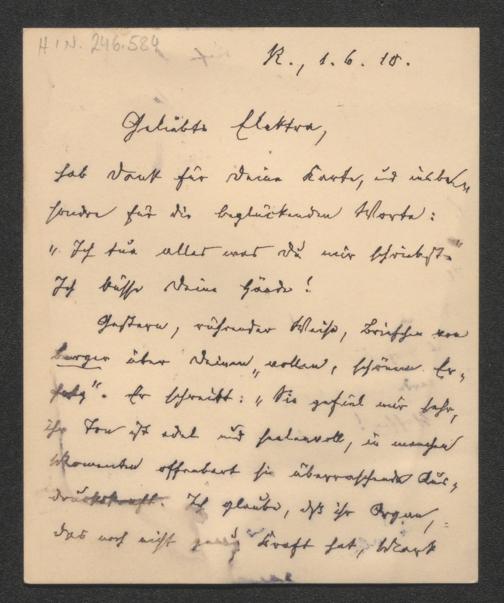 H.I.N. 246.584
R., 1. 6. 10.
Geliebte Elektra,
hab Dank für Deine Karte, und insbe-
sondre für die beglückenden Worte:
"Ich tue alles was Du mir schriebst."
Ich küsse Deine Hände!
Gestern, rührender Weise, Briefchen von
Berger über Deinen "vollen, schönen Er-
folg". Er schreibt: "Sie gefiel mir sehr,
ihr Ton ist edel und seelenvoll, in manchen
Momenten offenbart sie überraschende Aus-
druckskraft. Ich glaube, daß ihr Organ,
das noch nicht genug Kraft hat, Mark